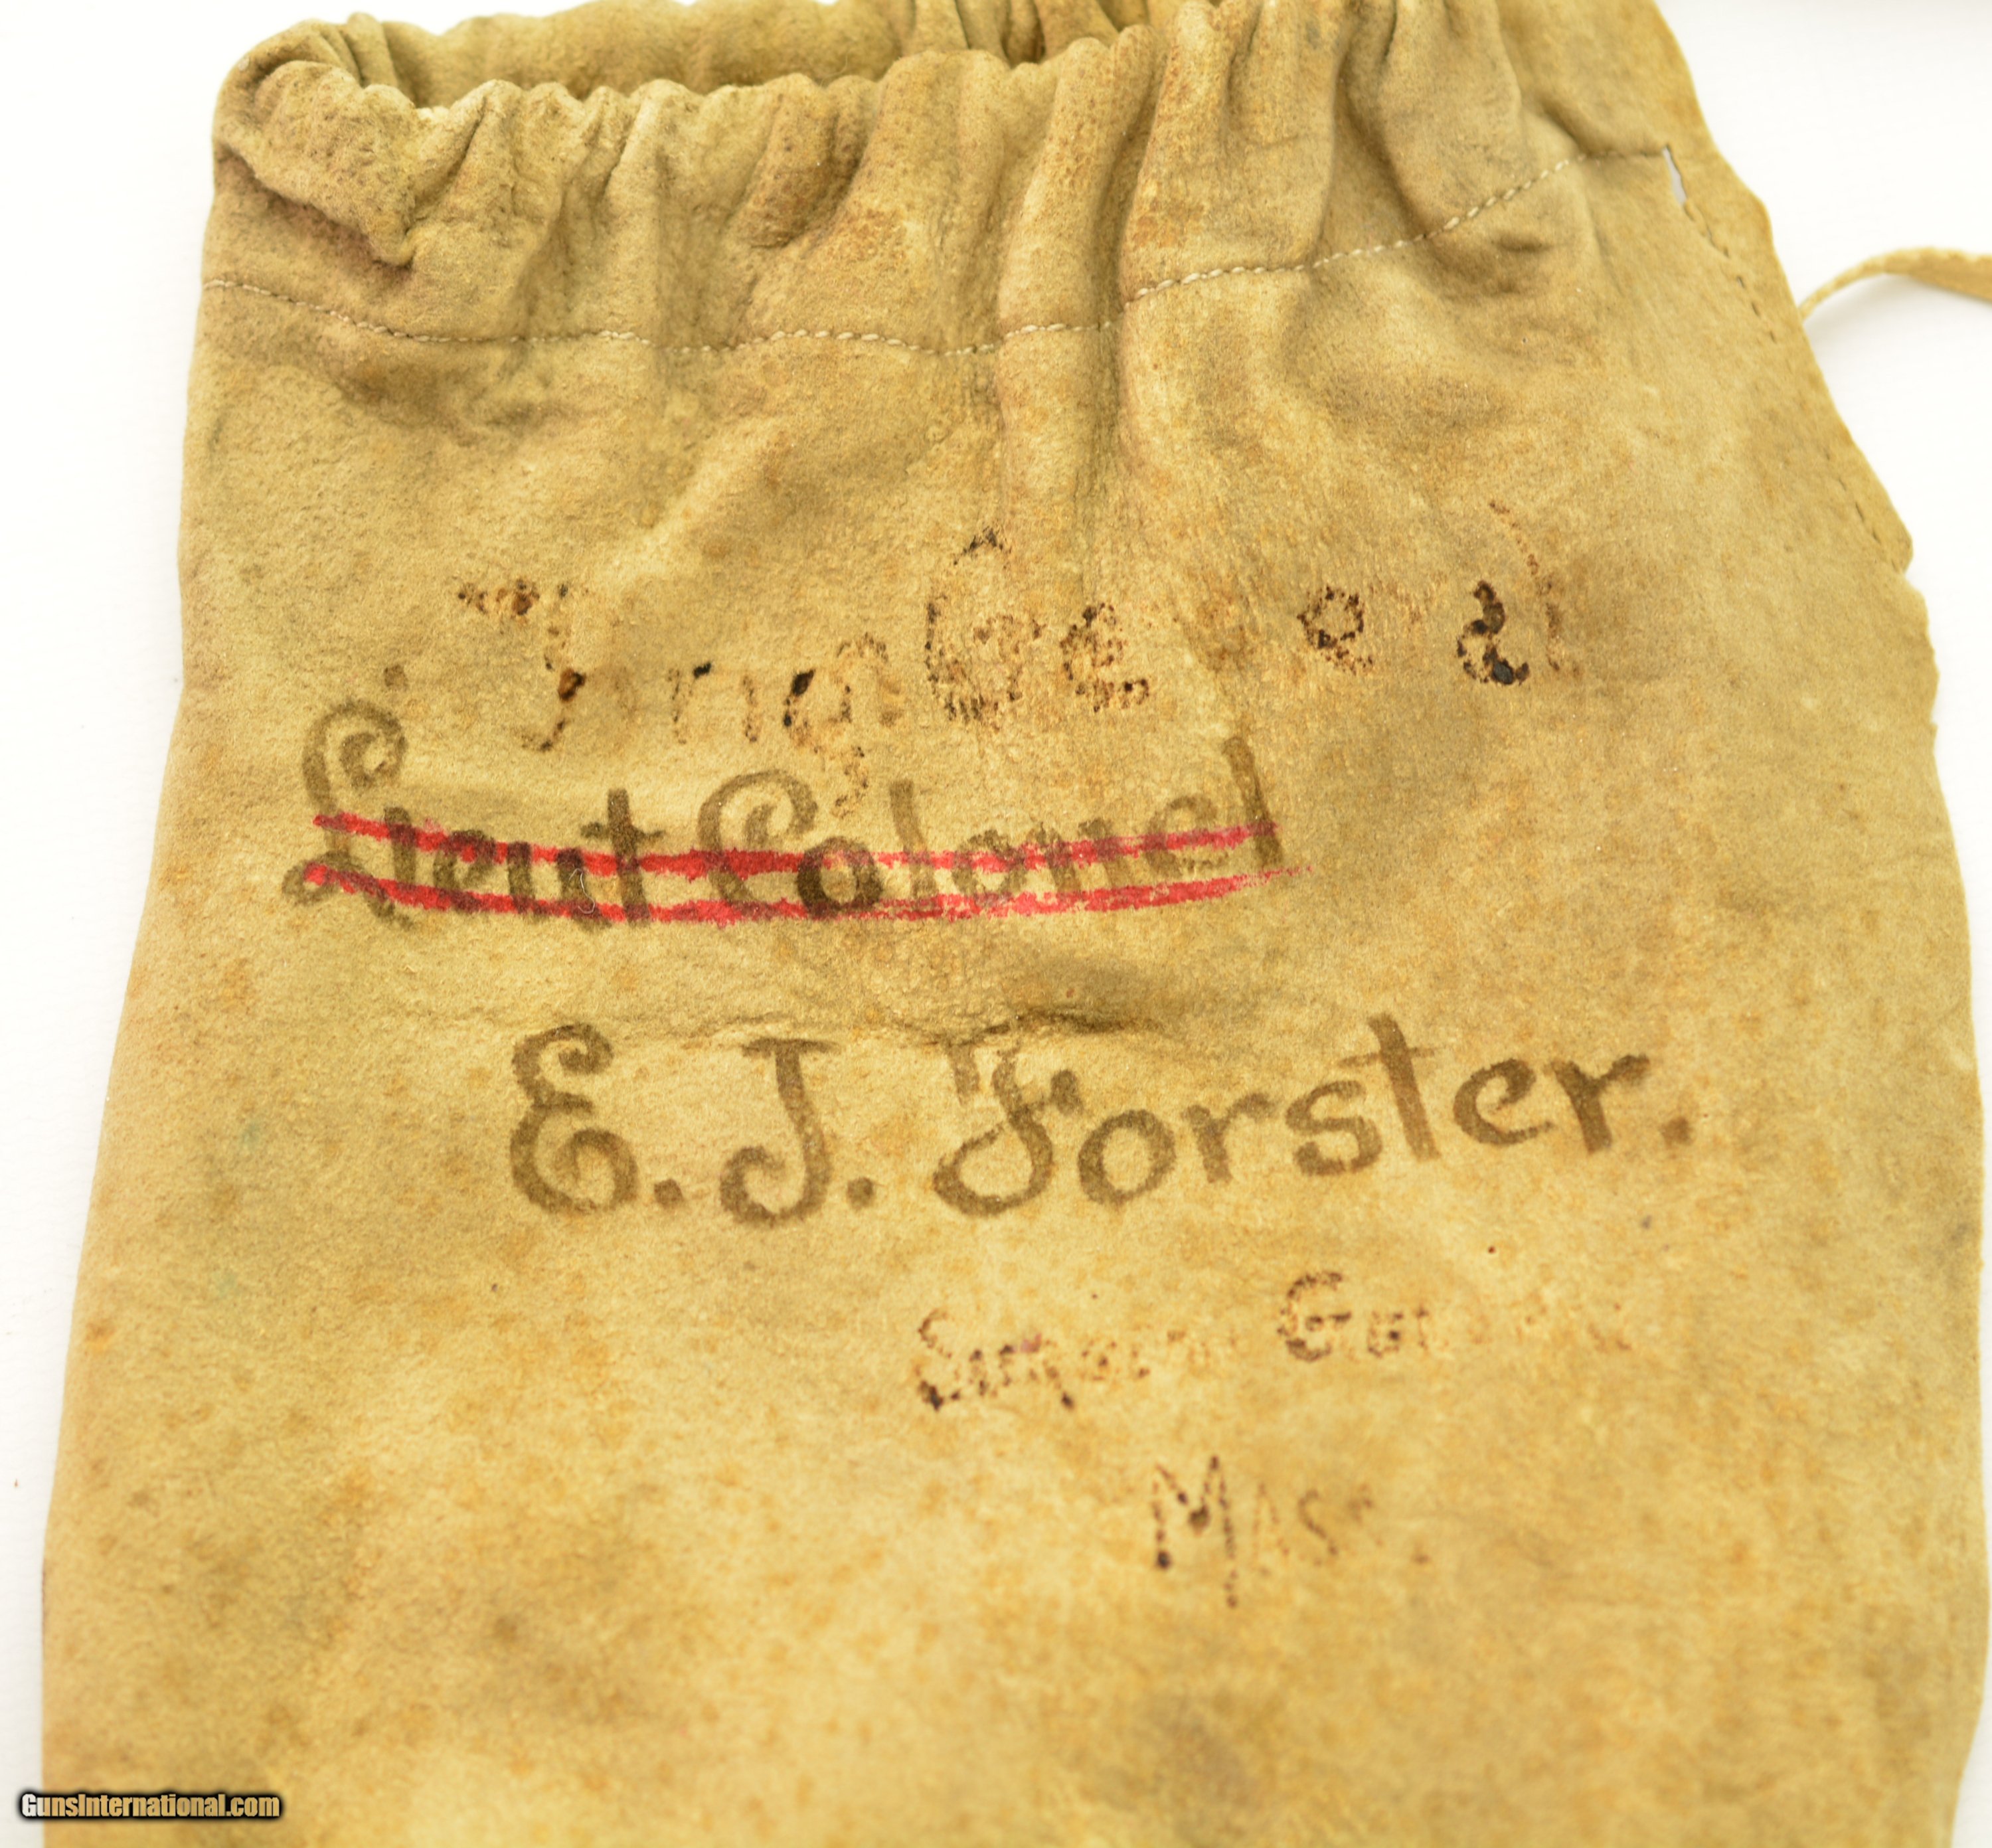 Lieut Colonel
E. J. Forster.
Surgeon General
Mass.
GunsInternational.com